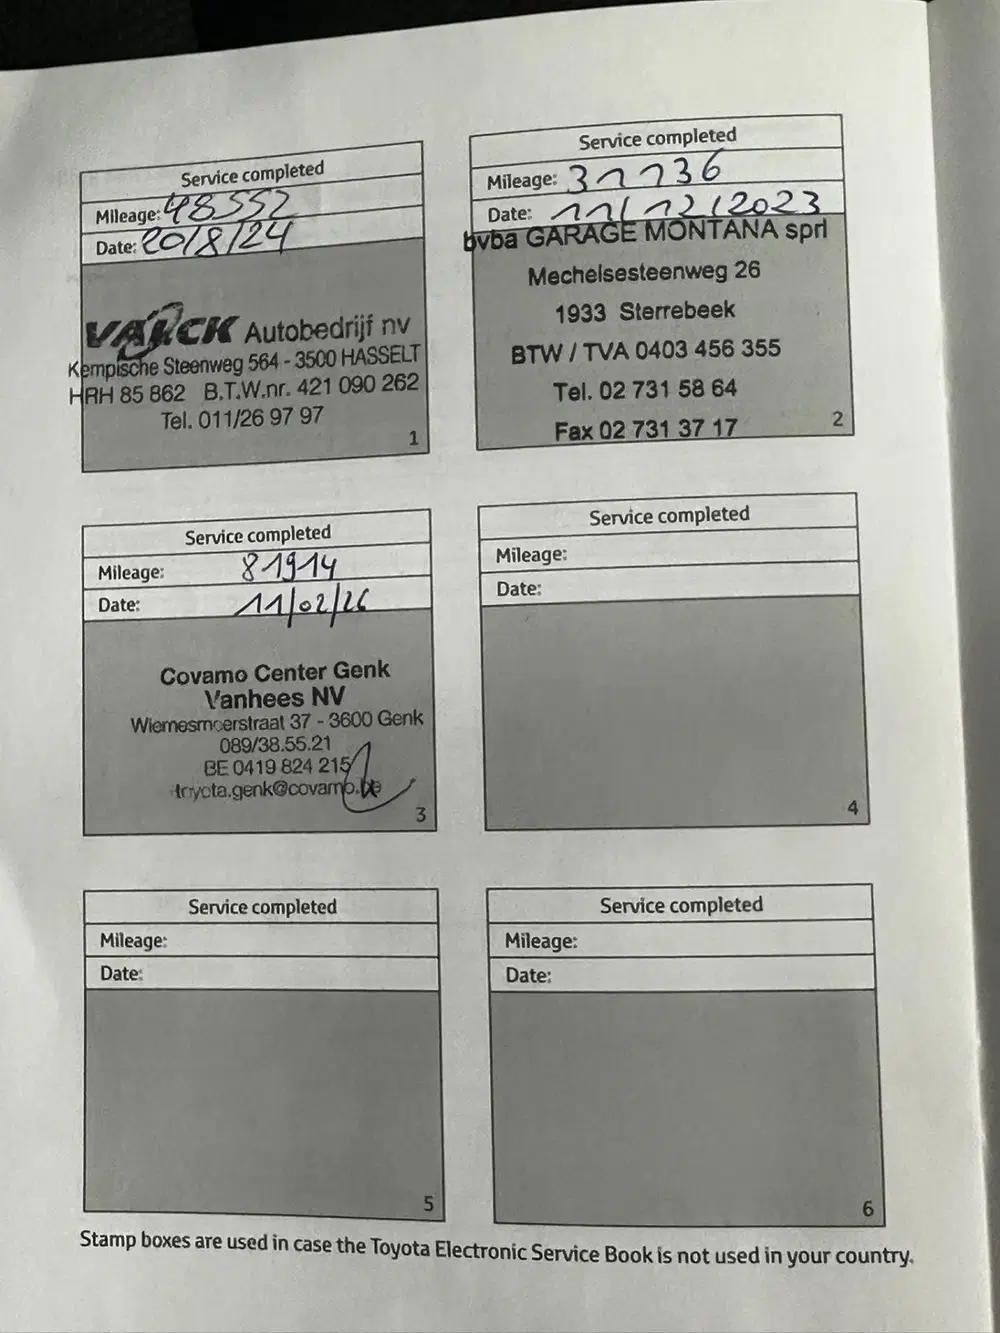 Service completed
Mileage: 48552
Date: 20/8/24
VALCK Autobedrijf nv
Kempische Steenweg 564 - 3500 HASSELT
HRH 85 862 B.T.W.nr. 421 090 262
Tel. 011/26 97 97
1
Service completed
Mileage: 31736
Date: 11/12/2023
bvba GARAGE MONTANA sprl
Mechelsesteenweg 26
1933 Sterrebeek
BTW / TVA 0403 456 355
Tel. 02 731 58 64
Fax 02 731 37 17
2
Service completed
Mileage: 81914
Date: 11/02/26
Covamo Center Genk
Vanhees NV
Wiemesmeerstraat 37 - 3600 Genk
089/38.55.21
BE 0419 824 215
toyota.genk@covamo.be
3
Service completed
Mileage:
Date:
4
Service completed
Mileage:
Date:
5
Service completed
Mileage:
Date:
6
Stamp boxes are used in case the Toyota Electronic Service Book is not used in your country.